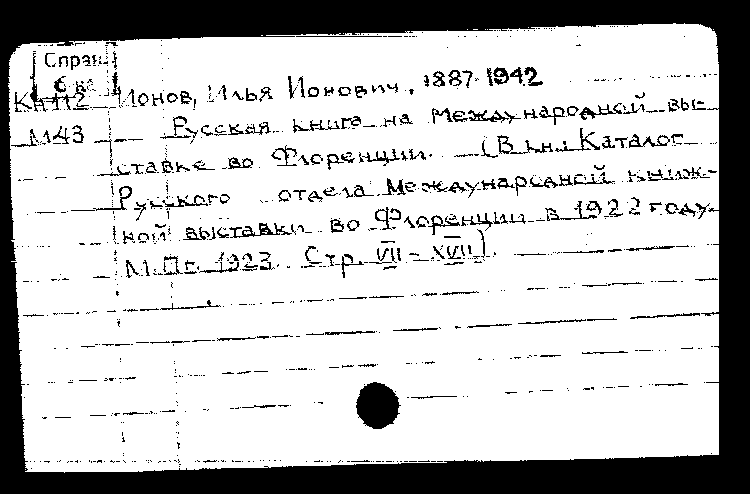 Справ.
Кн112 Ионов, Илья Ионович. 1887-1942
М43 Русская книга на Международной вы-
ставке во Флоренции. (В кн.: Каталог
Русского отдела Международной книж-
ной выставки во Флоренции в 1922 году.
М. Пг. 1923. Стр. VII - XVII).